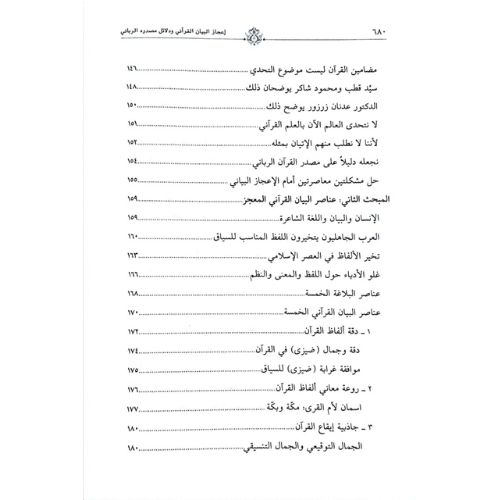 ٦٨٠ إعجاز البيان القرآني ودلائل مصدره الرباني
مضامين القرآن ليست موضوع التحدي ١٤٦
سيّد قطب ومحمود شاكر يوضحان ذلك ١٤٨
الدكتور عدنان زرزور يوضح ذلك ١٥٠
لا نتحدى العالم الآن بالعلم القرآني ١٥١
لأننا لا نطلب منهم الإتيان بمثله ١٥٢
نجعله دليلاً على مصدر القرآن الرباني ١٥٤
حل مشكلتين معاصرتين أمام الإعجاز البياني ١٥٥
المبحث الثاني: عناصر البيان القرآني المعجز ١٥٩
الإنسان والبيان واللغة الشاعرة ١٥٩
العرب الجاهليون يتخيرون اللفظ المناسب للسياق ١٦٠
تخير الألفاظ في العصر الإسلامي ١٦٣
غلو الأدباء حول اللفظ والمعنى والنظم ١٦٦
عناصر البلاغة الخمسة ١٦٨
عناصر البيان القرآني الخمسة ١٧٠
١ ـ دقة ألفاظ القرآن ١٧٢
دقة وجمال (ضيزى) في القرآن ١٧٤
موافقة غرابة (ضيزى) للسياق ١٧٥
٢ ـ روعة معاني ألفاظ القرآن ١٧٦
اسمان لأم القرى: مكّة وبكّة ١٧٧
٣ ـ جاذبية إيقاع القرآن ١٨٠
الجمال التوقيعي والجمال التنسيقي ١٨٠